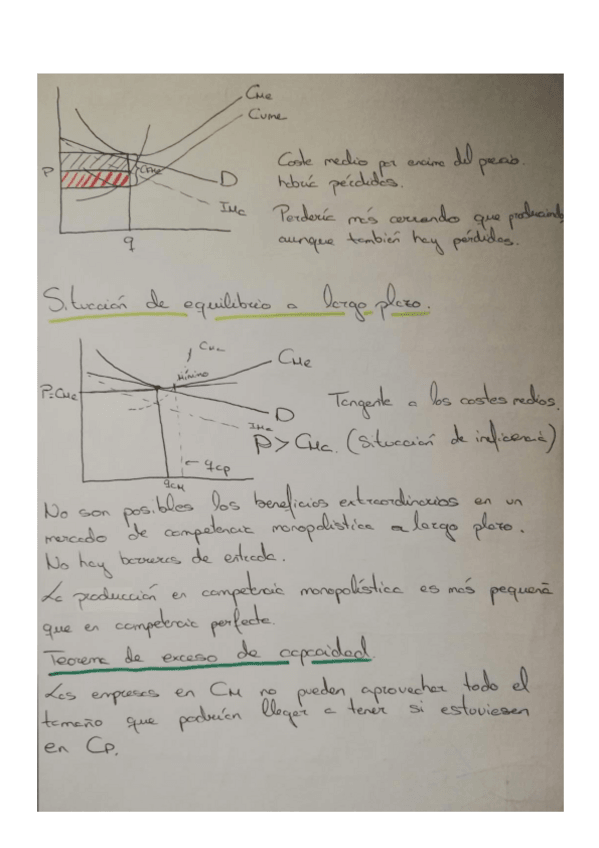 CMe
CVMe
P
CMa
D
IMa
q
Coste medio por encima del precio.
habría pérdidas.
Perdería más cerrando que produciendo
aunque también hay pérdidas.
Situación de equilibrio a largo plazo.
CMa
CMe
Mínimo
P=CMe
D
IMa
qCP
qCM
Tangente a los costes medios.
P > CMa. (Situación de ineficiencia)
No son posibles los beneficios extraordinarios en un
mercado de competencia monopolística a largo plazo.
No hay barreras de entrada.
La producción en competencia monopolística es más pequeña
que en competencia perfecta.
Teorema de exceso de capacidad.
Las empresas en CM no pueden aprovechar todo el
tamaño que podrían llegar a tener si estuviesen
en CP.